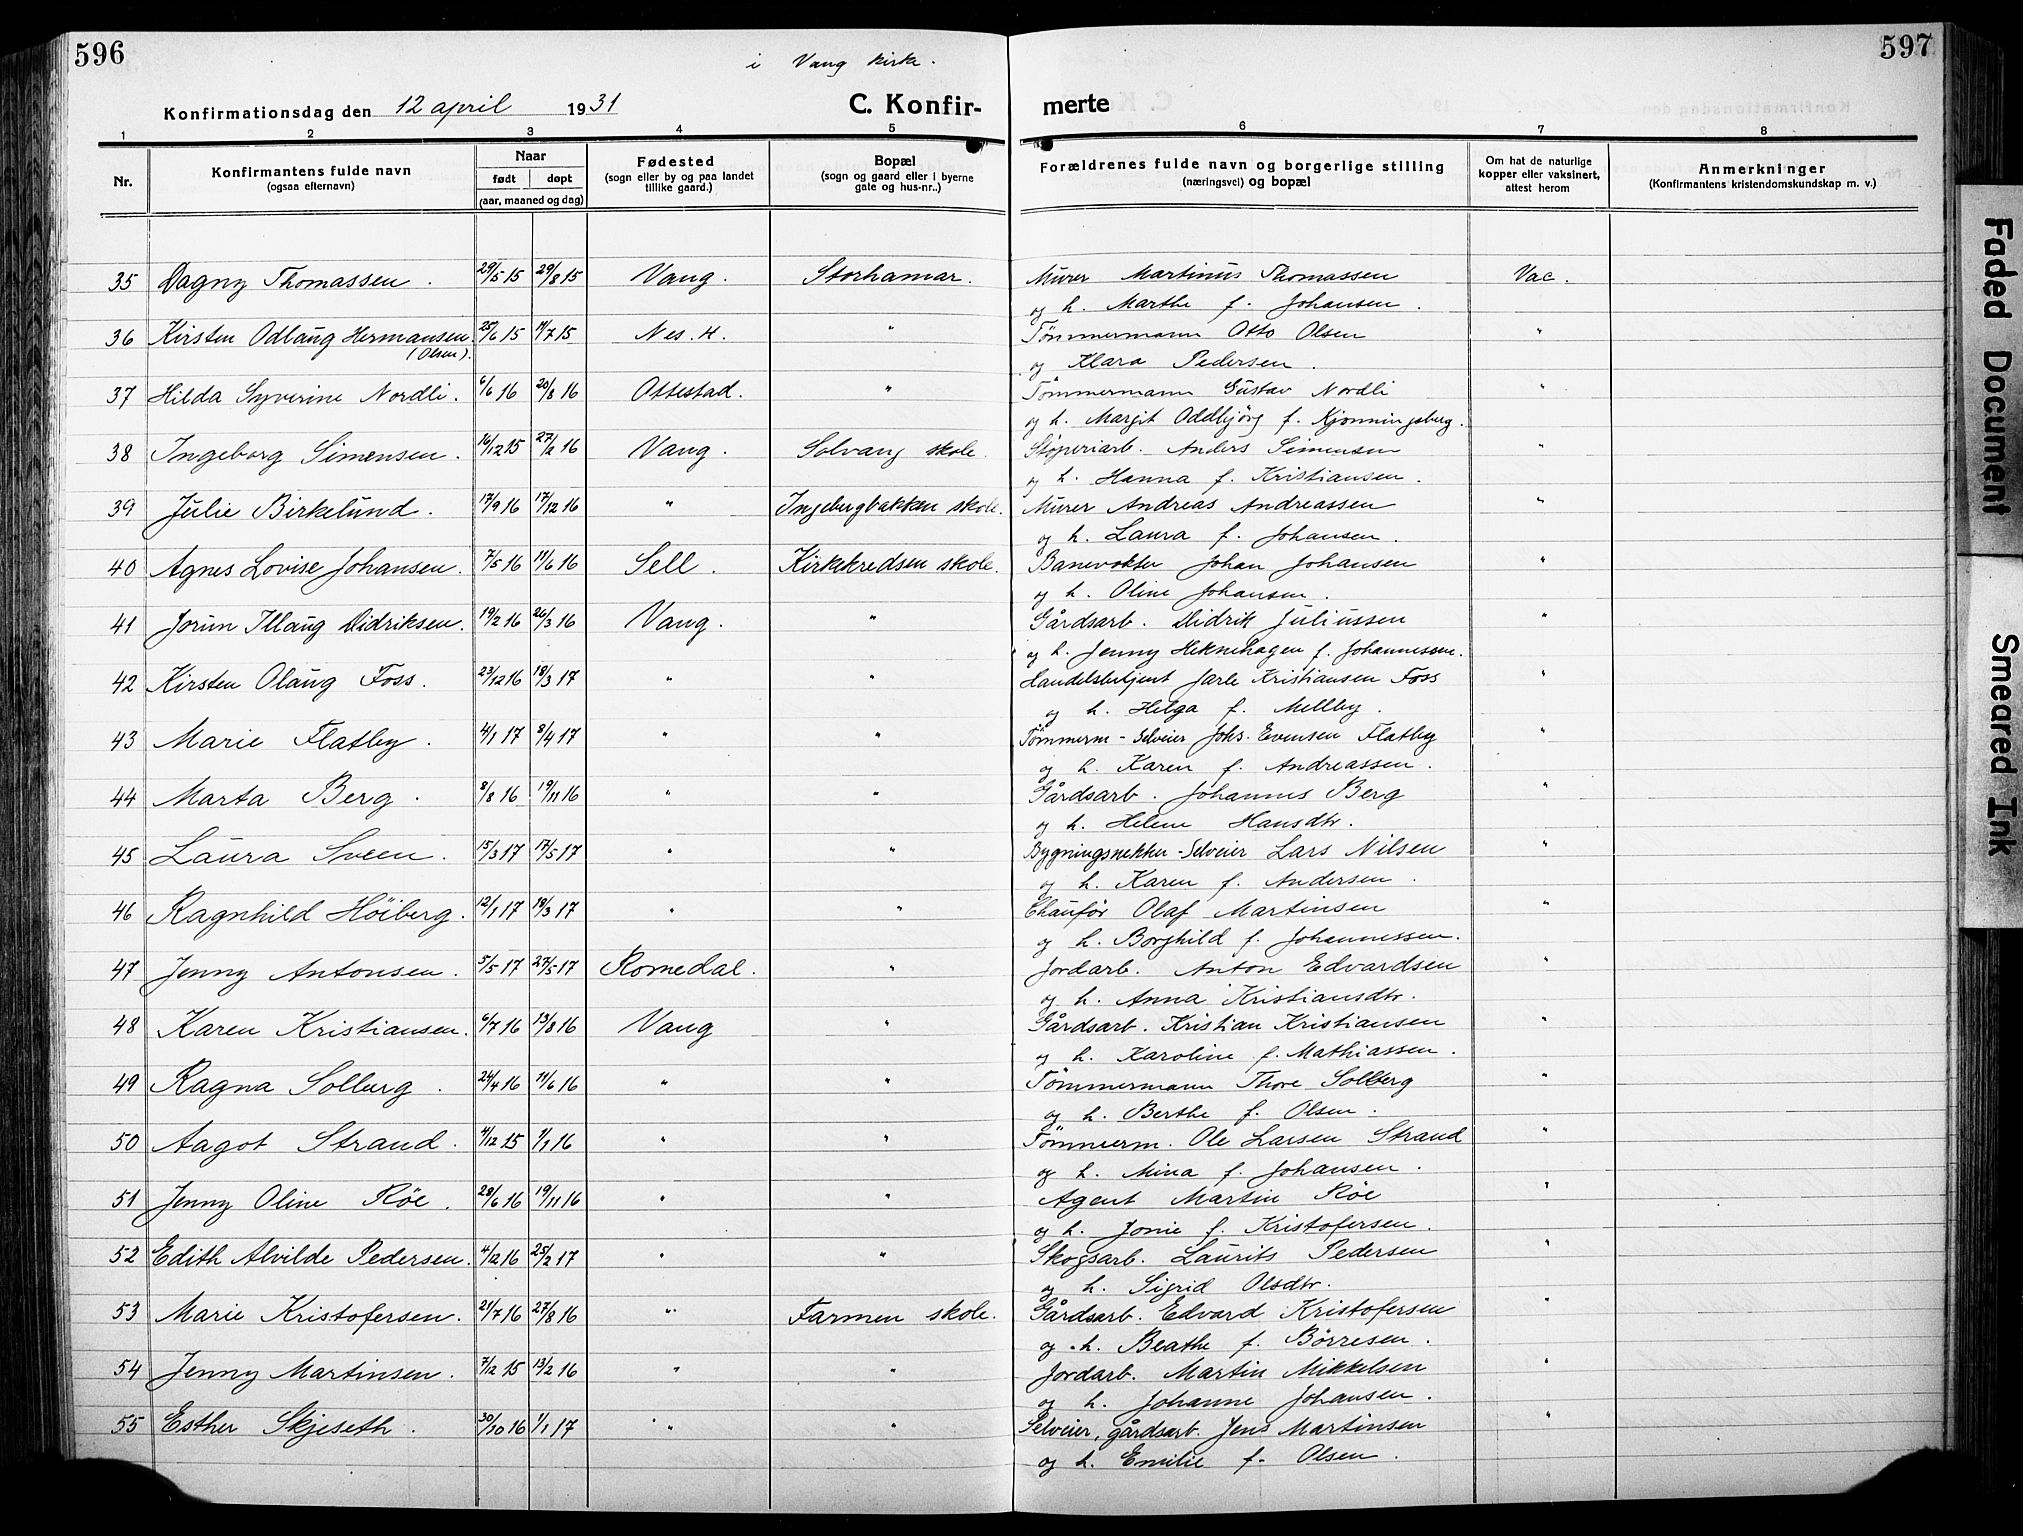 596
597
i Vang kirke.
Konfirmationsdag den 12 april 1931
C. Konfir-
merte
1 2 3 4 5 6 7 8
Nr.
Konfirmantens fulde navn
(ogsaa efternavn)
Naar
født døpt
(aar, maaned og dag)
Fødested
(sogn eller by og paa landet
tillike gaard.)
Bopæl
(sogn og gaard eller i byerne
gate og hus-nr..)
Forældrenes fulde navn og borgerlige stilling
(næringsvei) og bopæl
Om hat de naturlige
kopper eller vaksinert,
attest herom
Anmerkninger
(Konfirmantens kristendomskundskap m. v.)
35 Dagny Thomassen. 29/5 15 29/8 15 Vang. Storhamar. Murer Martinus Thomassen Vac.
og h. Marthe f. Johansen.
36 Kirsten Odlaug Hermansen 25/6 15 11/7 15 Nes. H. " Tømmermann Otto Olsen "
(Olsen).
og Klara Pedersen.
37 Hilda Syverine Nordli. 6/6 16 20/8 16 Ottestad. " Tømmermann Gustav Nordli "
og h. Margit Oddbjørg f. Kjonningsberg.
38 Ingeborg Simensen. 16/12 15 27/2 16 Vang. Solvang skole. Støperiarb. Anders Simensen "
og h. Hanna f. Kristiansen.
39 Julie Birkelund. 17/9 16 17/12 16 " Ingebergbakken skole. Murer Andreas Andreassen "
og h. Laura f. Johansen.
40 Agnes Lovise Johansen. 7/5 16 11/6 16 Sell. Kirkekredsen skole. Banevokter Johan Johansen "
og h. Oline Johansen.
41 Jorun Illaug Didriksen. 19/2 16 26/3 16 Vang. " Gårdsarb. Didrik Juliussen "
og h. Jenny Heknehagen f. Johannessen.
42 Kirsten Olaug Foss. 23/12 16 18/3 17 " " Handelsbetjent Jarle Kristiansen Foss "
og h. Helga f. Mellby.
43 Marie Flatby. 4/1 17 8/4 17 " " Tømmerm - Selveier Johs. Evensen Flatby "
og h. Karen f. Andreassen.
44 Marta Berg. 8/8 16 19/11 16 " " Gårdsarb. Johannes Berg "
og h. Helene Hansdtr.
45 Laura Sveen. 15/3 17 17/5 17 " " Bygningsnekker - Selveier Lars Nilsen "
og h. Karen f. Andersen.
46 Ragnhild Höiberg. 12/1 17 18/3 17 " " Chaufør Olaf Martinsen "
og h. Borghild f. Johannessen.
47 Jenny Antonsen. 5/5 17 27/5 17 Romedal. " Jordarb. Anton Edvardsen "
og h. Anna Kristiansdtr.
48 Karen Kristiansen. 6/7 16 13/8 16 Vang " Gårdsarb. Kristian Kristiansen "
og h. Karoline f. Mathiassen.
49 Ragna Solberg. 24/4 16 11/6 16 " " Tømmermann Thore Solberg "
og h. Berthe f. Olsen.
50 Aagot Strand. 4/12 15 1/1 16 " " Tømmerm. Ole Larsen Strand "
og h. Mina f. Johansen.
51 Jenny Oline Röe. 28/6 16 19/11 16 " " Agent Martin Röe "
og h. Jonie f. Kristofersen.
52 Edith Alvilde Pedersen. 4/12 16 25/2 17 " " Skogsarb. Laurits Pedersen "
og h. Sigrid Olsdtr.
53 Marie Kristofersen. 21/7 16 27/8 16 " Farmen skole. Gårdsarb. Edvard Kristofersen "
og h. Beathe f. Börresen.
54 Jenny Martinsen. 7/12 15 13/2 16 " " Jordarb. Martin Mikkelsen "
og h. Johanne Johansen.
55 Esther Skjeseth. 30/10 16 1/1 17 " " Selveier, gårdsarb. Jens Martinsen "
og h. Emilie f. Olsen.
Faded Document
Smeared Ink